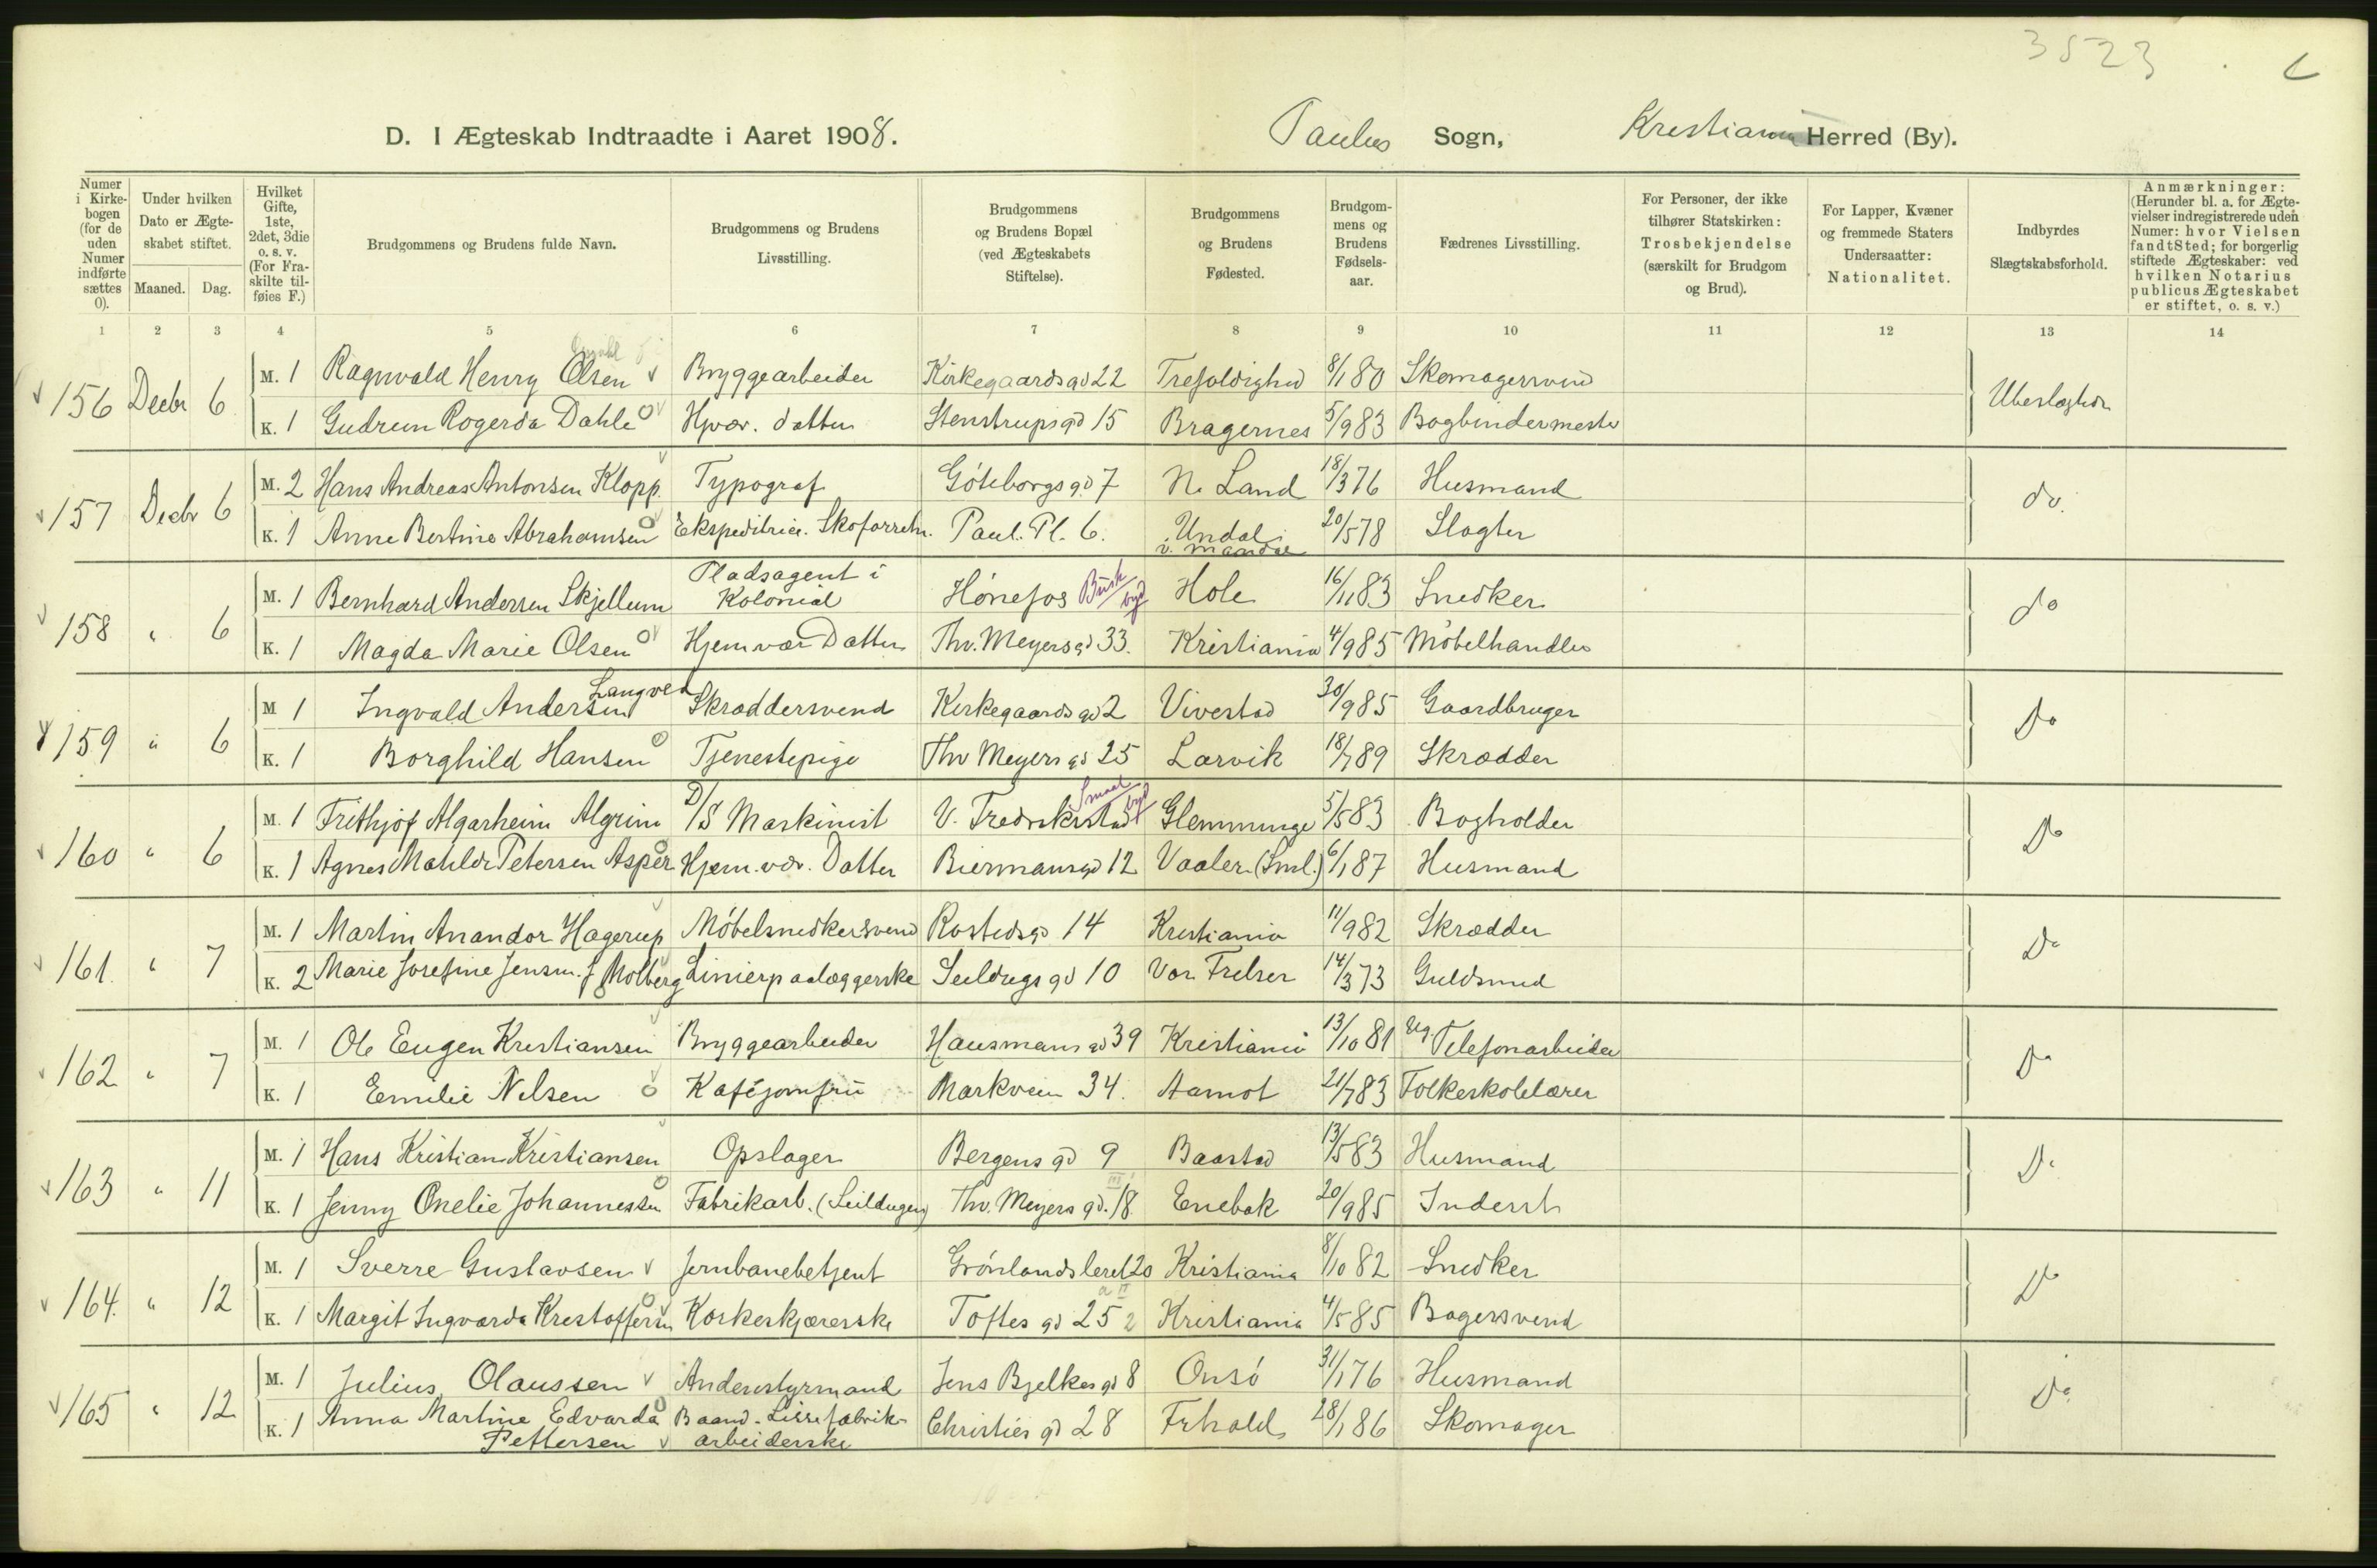 3523 .
D. I Ægteskab Indtraadte i Aaret 1908. Paulus Sogn, Kristiania Herred (By).
Numer i Kirkebogen (for de uden Numer indførte sættes 0). Under hvilken Dato er Ægteskabet stiftet. Maaned. Dag. Hvilket Gifte, 1ste, 2det, 3die o. s. v. (For Fraskilte tilføies F.) Brudgommens og Brudens fulde Navn. Brudgommens og Brudens Livsstilling. Brudgommens og Brudens Bopæl (ved Ægteskabets Stiftelse). Brudgommens og Brudens Fødested. Brudgommens og Brudens Fødselsaar. Fædrenes Livsstilling. For Personer, der ikke tilhører Statskirken: Trosbekjendelse (særskilt for Brudgom og Brud). For Lapper, Kvæner og fremmede Staters Undersaatter: Nationalitet. Indbyrdes Slægtskabsforhold. Anmærkninger: (Herunder bl. a. for Ægtevielser indregistrerede uden Numer: hvor Vielsen fandt Sted; for borgerlig stiftede Ægteskaber: ved hvilken Notarius publicus Ægteskabet er stiftet, o. s. v.)
1 2 3 4 5 6 7 8 9 10 11 12 13 14
156 Decbr 6 M. 1 Ragnvald Henry Olsen Bryggearbeider Kirkegaardsgd 22 Trefoldighed 8/1 80 Skomagersvend Ubeslægtede
K. 1 Gudrun Rogerda Dahle Hjvær. datter Stenstrupsgd 15 Bragernes 5/9 83 Bogbindermester
157 Decbr 6 M. 2 Hans Andreas Antonsen Klopp. Typograf Göteborgsgd 7 N. Land 18/3 76 Husmand do.
K. 1 Anne Bertine Abrahamsen Ekspeditrice. Skoforretn. Paul. Pl. 6. Undal i v. Mandal 20/5 78 Slagter
158 " 6 M. 1 Bernhard Andersen Skjellum Pladsagent i Kolonial Hønefos Busk byd Hole 16/11 83 Snedker do
K. 1 Magda Marie Olsen Hjemvær Datter Thv. Meyersgd 33. Kristiania 4/9 85 Møbelhandler
159 " 6 M 1 Ingvald Andersen Langved Skræddersvend Kirkegaardsgd 2 Vivestad 30/9 85 Gaardbruger Do
K. 1 Borghild Hansen Tjenestepige Thv Meyers gd 25 Larvik 18/7 89 Skrædder
160 " 6 M. 1 Frithjof Algarheim Algrim D/S Maskinist V. Fredrikstad Smaal byd Glemminge 5/5 83 Bogholder Do
K. 1 Agnes Mathilde Petersen Asper Hjem. vær. Datter Biermansgd 12 Vaaler (Sml.) 6/1 87 Husmand
161. " 7 M. 1 Martin Anandor Hagerup Møbelsnedkersvend Rostedsgd 14 Kristiania 11/9 82 Skrædder Do
K. 2 Marie Josefine Jensen. f Molberg Linierpaalæggerske Seildugsgd 10 Vor Frelser 14/3 73 Guldsmed
162 " 7 M. 1 Ole Eugen Kristiansen Bryggearbeider Hausmansgd 39 Kristiania 13/10 81 Ug. Telefonarbeider Do
K. 1 Emilie Nilsen Kaféjomfru Markveien 34. Aamot 21/7 83 Folkeskolelærer
163 " 11 M. 1 Hans Kristian Kristiansen Opslager Bergens gd 9 Baastad 13/5 83 Husmand Do
K. 1 Jenny Onelie Johannessen Fabrikarb. (Seildugen) Thv. Meyers gd. 18 III Enebak 20/9 85 Inderst
164. " 12 M. 1 Sverre Gustavsen Jernbanebetjent Grønlandsleret 20 Kristiania 8/10 82 Snedker Do
K. 1 Margit Ingvarda Kristoffersen Korkeskjærerske Toftes gd 25 2 Kristiania 4/5 85 Bagersvend
165 " 12 M. 1 Julius Olaussen Andenstyrmand Jens Bjelkesgd 8 Onsø 31/1 76 Husmand Do
K. 1 Anna Martine Edvarda Pettersen Baand- Lissefabrik- arbeiderske Christies gd 28 Frhald 28/1 86 Skomager